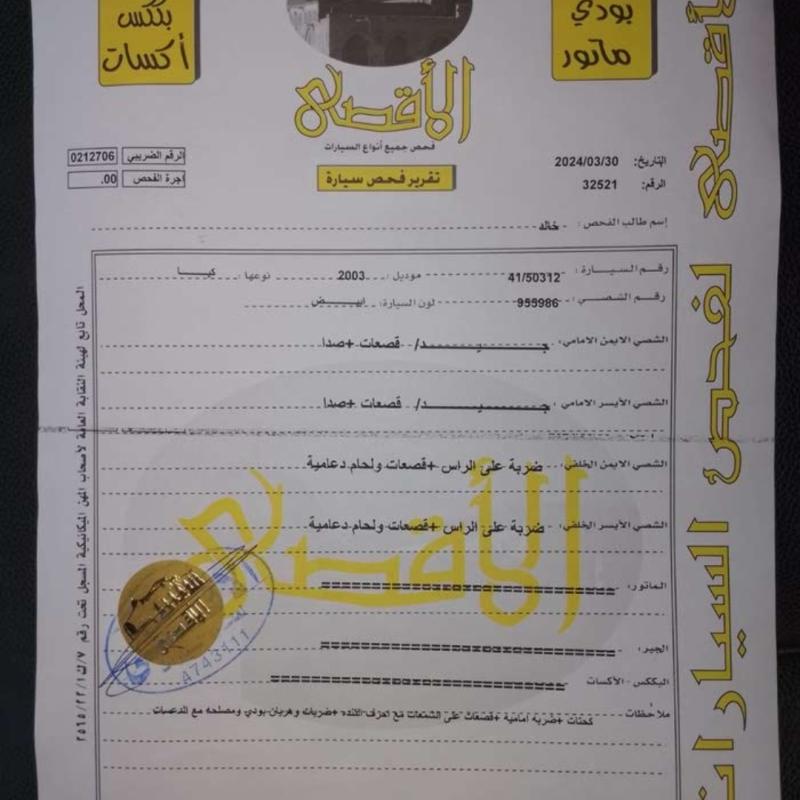 بودي
ماتور
بككس
أكسات
الأقصى
فحص جميع أنواع السيارات
تقرير فحص سيارة
التاريخ: 2024/03/30
الرقم: 32521
الرقم الضريبي 0212706
اجرة الفحص .00
إسم طالب الفحص: خالد
رقم السيارة: 41/50312 موديل: 2003 نوعها: كيا
رقم الشصي: 955986 لون السيارة: ابيض
الشصي الايمن الامامي: جيد/ قصعات +صدا
الشصي الأيسر الامامي: جيد/ قصعات +صدا
الشصي الايمن الخلفي: ضربة على الراس +قصعات ولحام دعامية
الشصي الأيسر الخلفي: ضربة على الراس +قصعات ولحام دعامية
الماتور: ====================
الجير: ====================
البككس - الأكسات ====================
ملاحظات كحتات +ضربة امامية +قصعات على الشنتعات مع اطراف +ضربات وهريان بودي ومصلحه مع الدعسات
الأقصى
A743411
المحل تابع لهيئة النقابة العامة لأصحاب المهن الميكانيكية المسجل تحت رقم
الأقصى لفحص السيارات